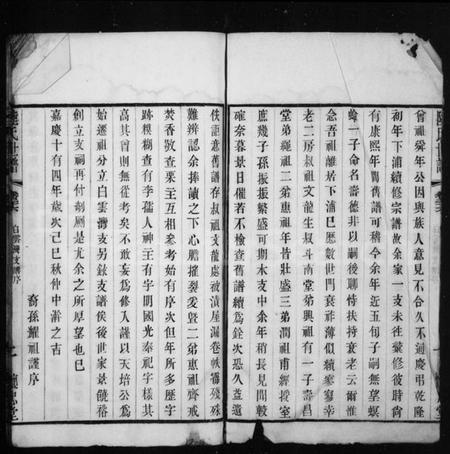 曾祖舜年公因與族人意見不合久不通慶弔乾隆
初年下浦續修宗譜故余家一支未往彙修彼時尚
有康熙年間舊譜可稽今余年近五旬子嗣無望螟
蛉一子命名壽德非以嗣後聊恃扶持衰老云爾惟
念吾祖離居下浦已歷數世門衰祚薄似續寥寥幸
老二房叔祖文龍生叔斗南堂弟興祖有一子壽昌
堂弟繩祖二弟惠祖年皆壯盛三弟潤祖甫經授室
庶幾子孫振振繁盛可期本支中余年稍長見聞較
確奈暮景日催若不檢查舊譜續爲銓次恐久益遺
佚詎意舊譜存叔祖支文龍處被漬屋漏卷軼霉殘殊
難辨認余捧讀之下心膽摧裂爰曁二弟惠祖齊戒
焚香敬查來主互相參考始有序次但年所多歷字
跡模糊查有李孺人神主有字明國光奉祀字樣其
高其曾則無從考矣不敢妄爲修入謹以天培公爲
始遷祖分立白雲灣支另敘支譜俟後世家景饒裕
創立支祠再付剞劂是尤余之所厚望也已
嘉慶十有四年歲次己巳秋仲中澣之吉
裔孫耀祖謹序
白雲灣支譜序